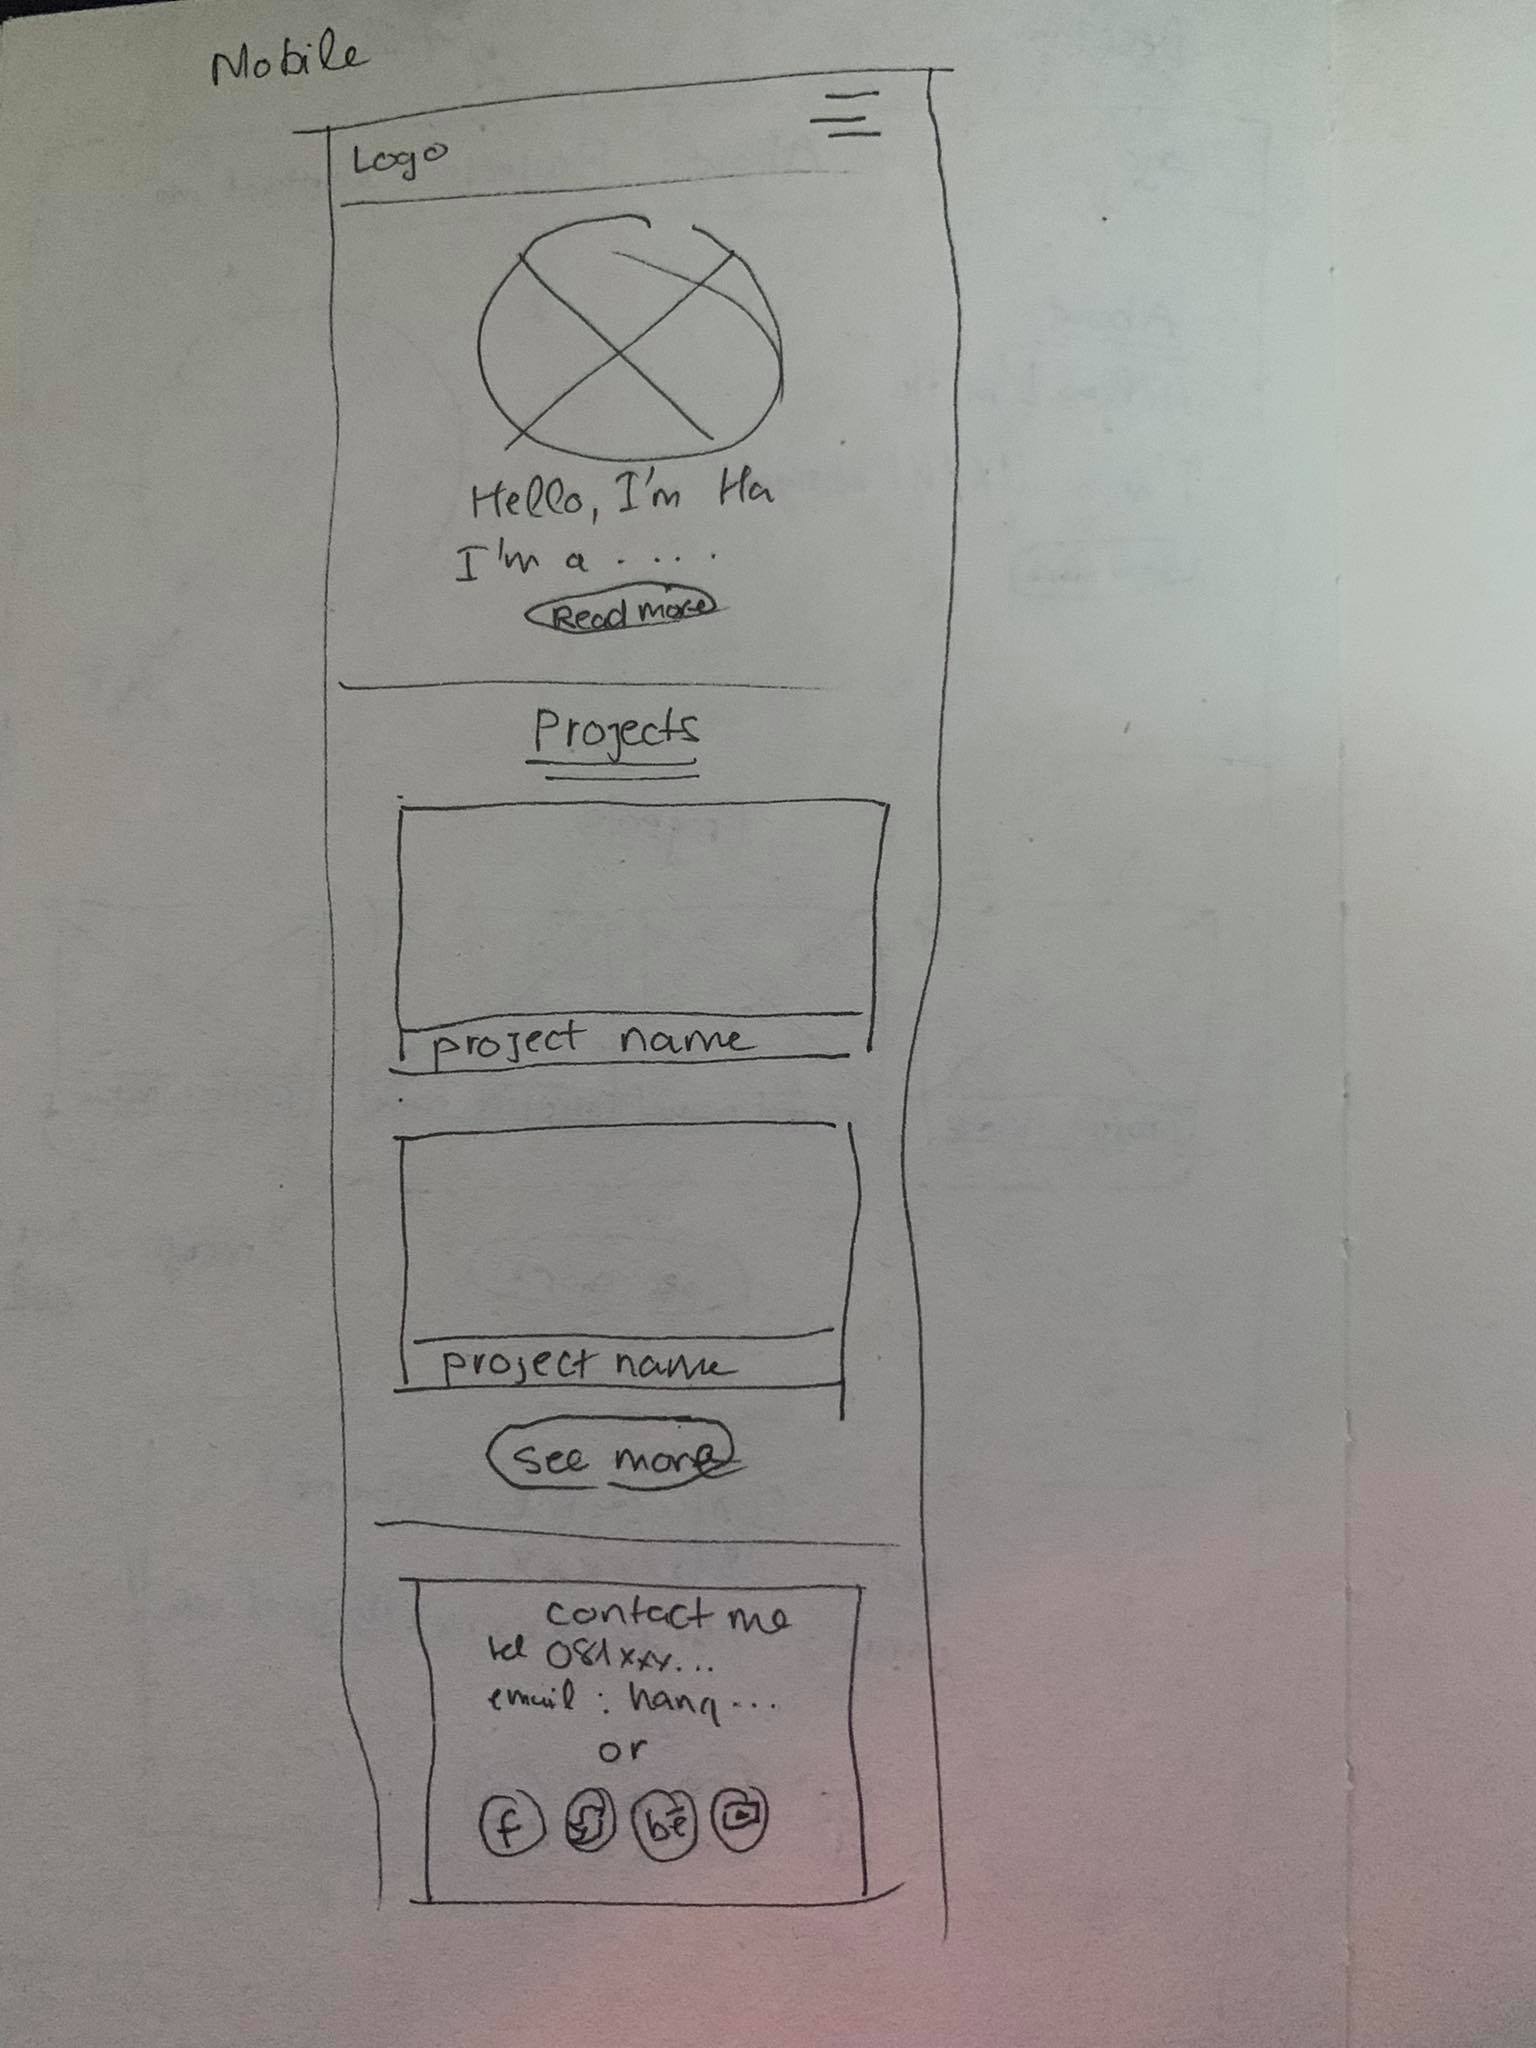 Mobile
Logo
Hello, I'm Ha
I'm a ....
Read more
Projects
project name
project name
see more
contact me
tel 081xxx...
email : hanq...
or
f
bē